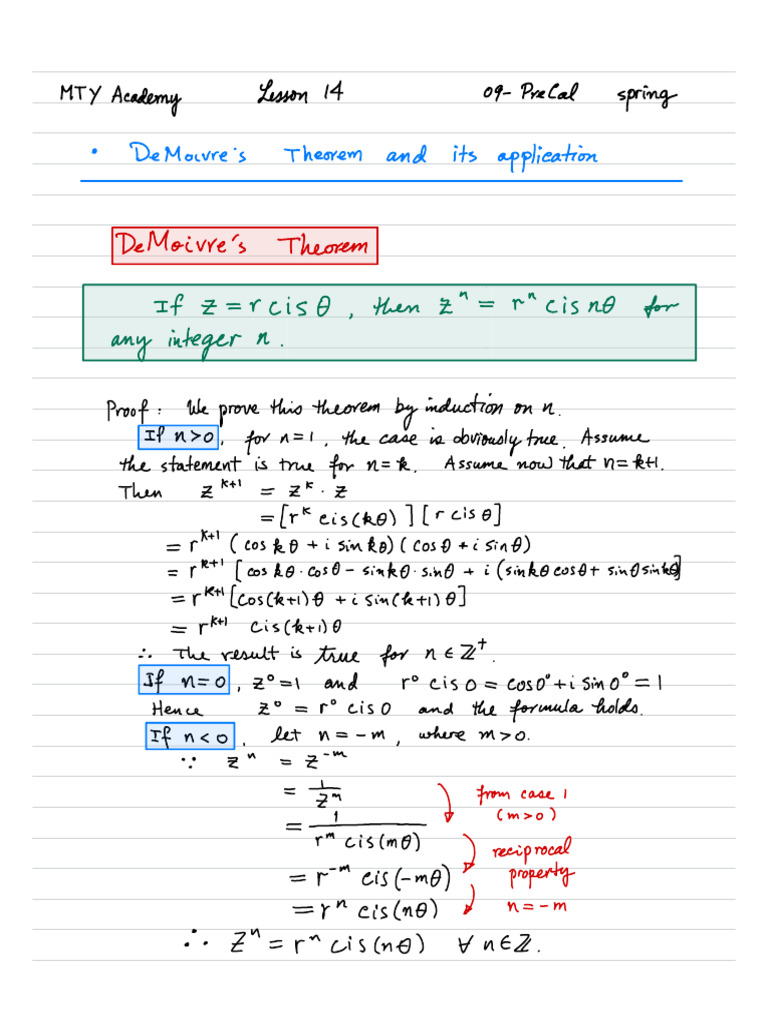 MTY Academy Lesson 14 09-PreCal spring
• DeMoivre's Theorem and its application
DeMoivre's Theorem
If z = r cis θ, then zⁿ = rⁿ cis nθ for
any integer n.
Proof: We prove this theorem by induction on n.
If n>0, for n=1, the case is obviously true. Assume
the statement is true for n=k. Assume now that n=k+1.
Then z^{k+1} = z^k · z
= [r^k cis(kθ)][r cis θ]
= r^{k+1} (cos kθ + i sin kθ)(cos θ + i sin θ)
= r^{k+1} [cos kθ · cos θ − sin kθ · sin θ + i (sin kθ cos θ + sin θ sin kθ)]
= r^{k+1} [cos(k+1)θ + i sin(k+1)θ]
= r^{k+1} cis(k+1)θ
∴ The result is true for n ∈ ℤ⁺.
If n=0, z⁰=1 and r⁰ cis 0 = cos 0° + i sin 0° = 1
Hence z⁰ = r⁰ cis 0 and the formula holds.
If n<0, let n=−m, where m>0.
∵ zⁿ = z^{−m}
= 1/z^m from case 1
= 1/(r^m cis(mθ)) (m>0)
= r^{−m} cis(−mθ) reciprocal property
= rⁿ cis(nθ) n=−m
∴ zⁿ = rⁿ cis(nθ) ∀ n∈ℤ.